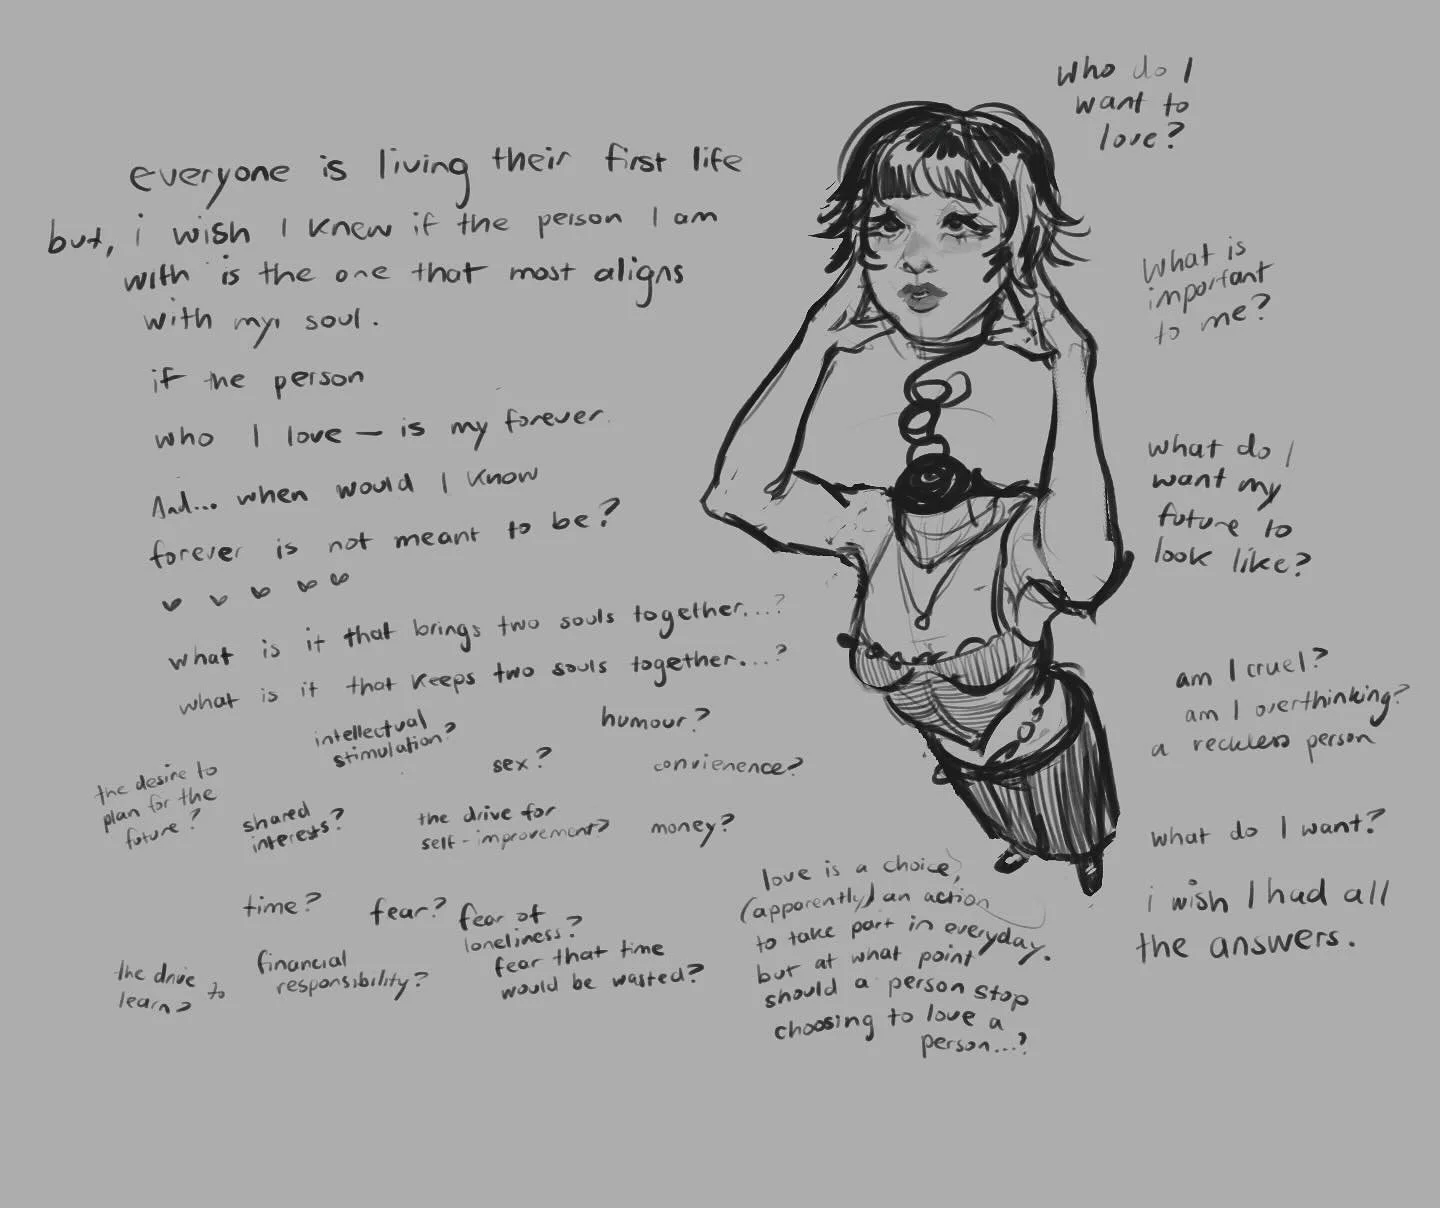 everyone is living their first life
but, i wish I knew if the person I am
with is the one that most aligns
with my soul.
if the person
who I love — is my forever.
And... when would I know
forever is not meant to be?
what is it that brings two souls together....?
what is it that keeps two souls together....?
intellectual
stimulation?
humour?
sex?
convienence?
the desire to
plan for the
future?
shared
interests?
the drive for
self-improvement?
money?
time?
fear?
fear of
loneliness?
fear that time
would be wasted?
the drive to
learn?
financial
responsibility?
love is a choice,
(apparently) an action
to take part in everyday.
but at what point
should a person stop
choosing to love a
person...?
who do I
want to
love?
what is
important
to me?
what do I
want my
future to
look like?
am I cruel?
am I overthinking?
a reckless person
what do I want?
i wish I had all
the answers.